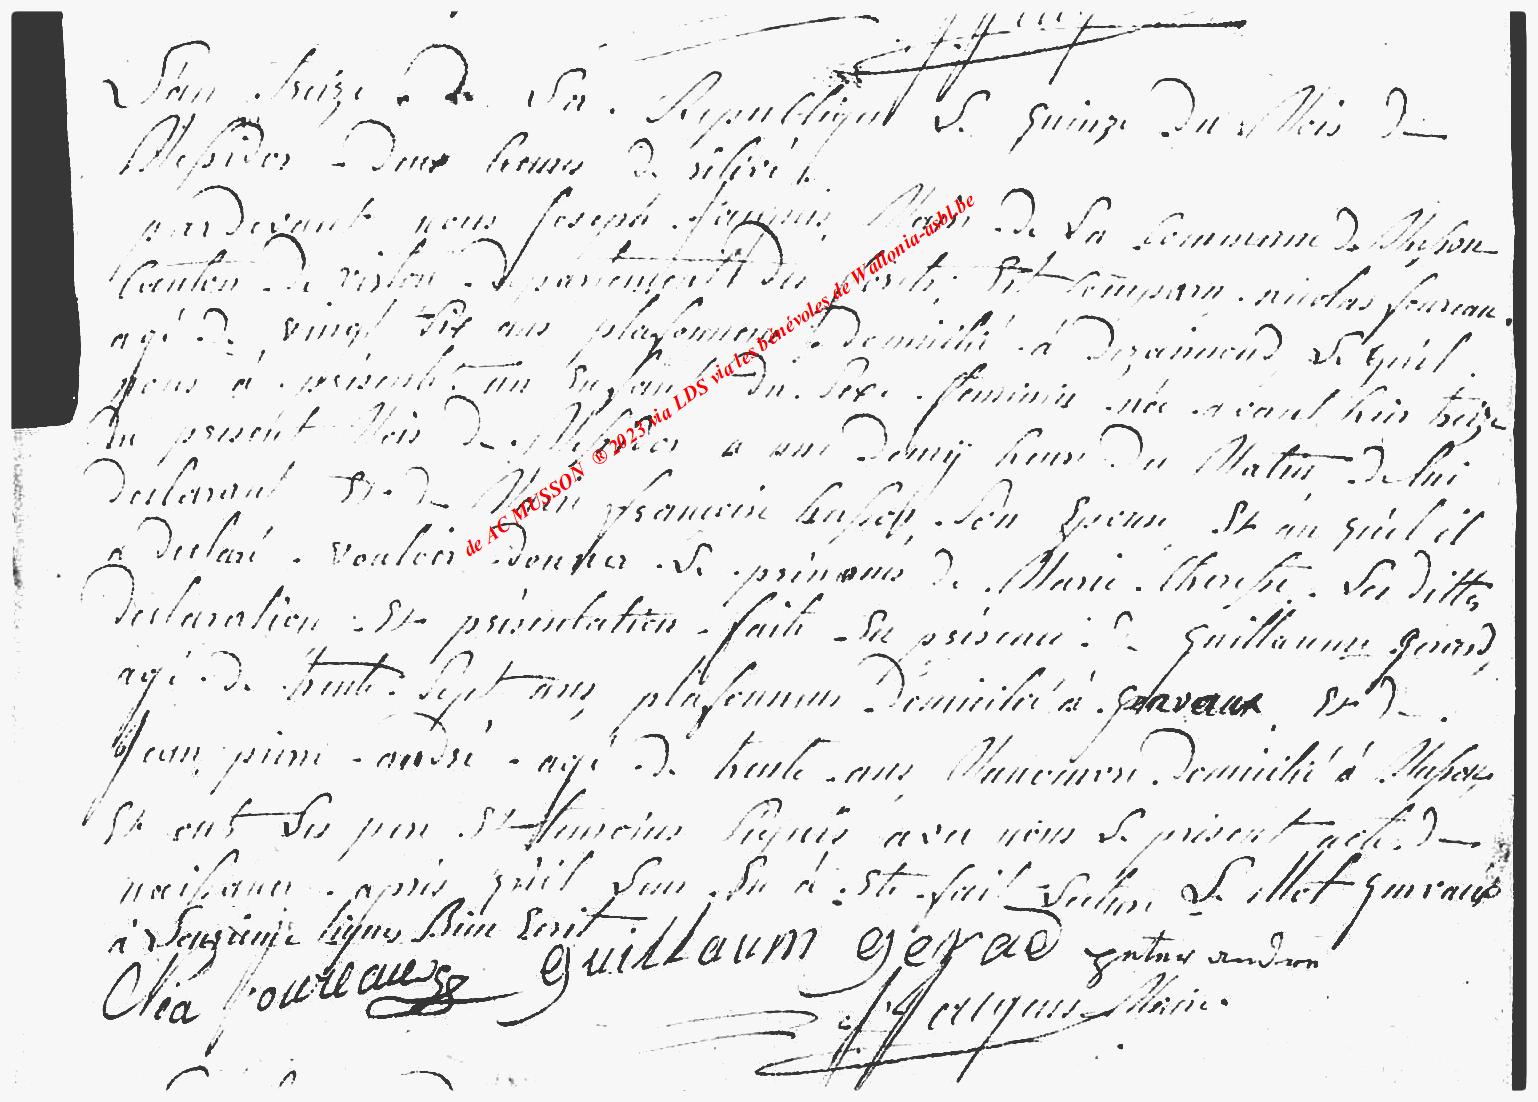 L'an treize de La Republique Le quinze du Mois de
Messidor deux heures de rélévé
pardevant nous Joseph Jacques Maire de La Commune de Musson
Canton de virton Departement des forêts, Est Comparu nicolas foureau
agé de vingt six ans plafonneur domicilié à Le quél
nous à présenté un Enfant du Sexe feminin née avant hier treize
du present Mois de Messidor a une demÿ heure du Matin de lui
declarant Et de Marie françoise son Epouse Et au quél il
a declaré vouloir donner Le prénoms de Marie Therese Les dittes
declaration Et présentation faite En présence de guillaume gerard,
agé de trente Sept ans, plafonneur Domicilié à gorvaux Et de
Jean pierre andré agé de trente ans Manoeuvre Domicilié à Musson
Et ont Les pere Et temoins signés avec nous Le present acte de
naissance apris qu'il Leur En à Eté fait Lecture Le Mot gorvaux
à L'onzieme lignes Bien Ecrit
foureaux guillaum gerad peter andre
JJacques Maire
de AC MUSSON ® 2023 via LDS via les bénévoles de Wallonia-asbl.be